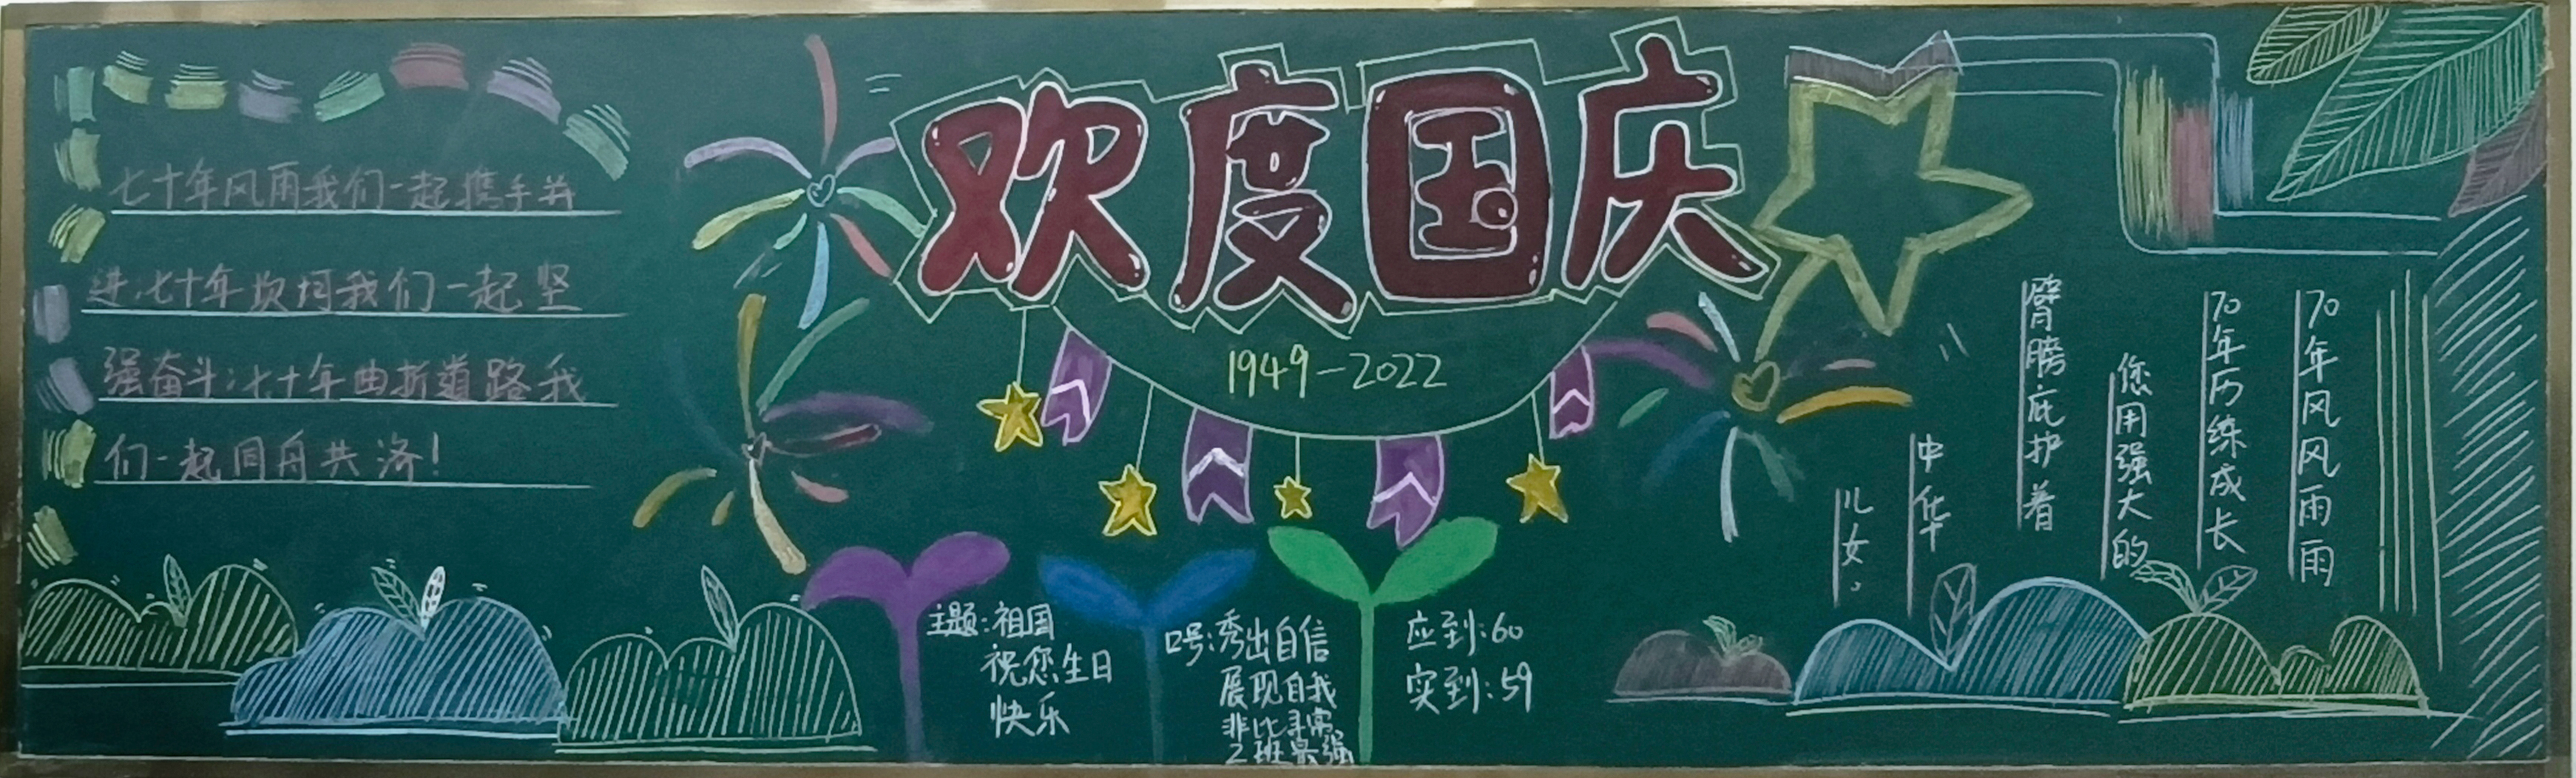 七十年风雨我们一起携手并
进;七十年坎坷我们一起坚
强奋斗;七十年曲折道路我
们一起同舟共济!
欢度国庆
1949-2022
主题:祖国
祝您生日
快乐
口号:秀出自信
展现自我
非比寻常
2班最强
应到:60
实到:59
70年风风雨雨
70年历练成长
您用强大的
臂膀庇护着
中华
儿女。